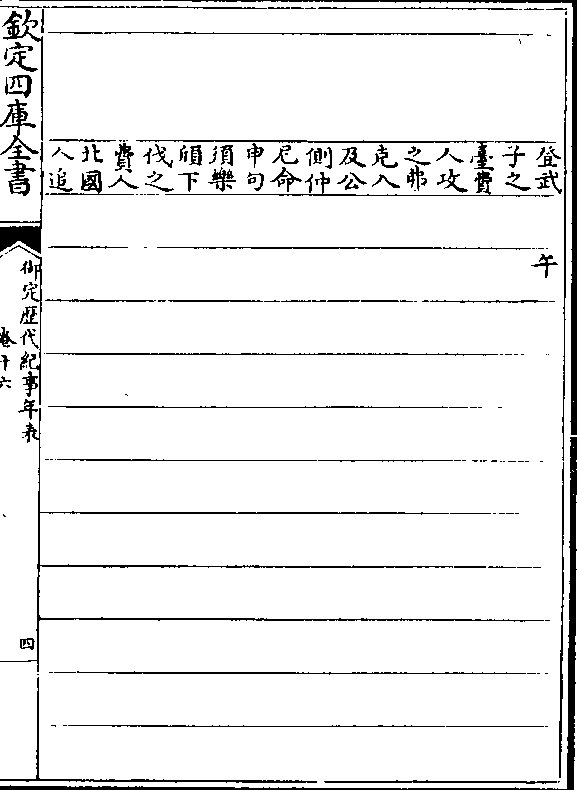 登武
子之
臺費
人攻
之弗
克入
及公
側仲
尼命
申句
須樂
頎下
伐之
費人
北國
人追
午
欽定四庫全書
御定歴代紀事年表
卷十六
四